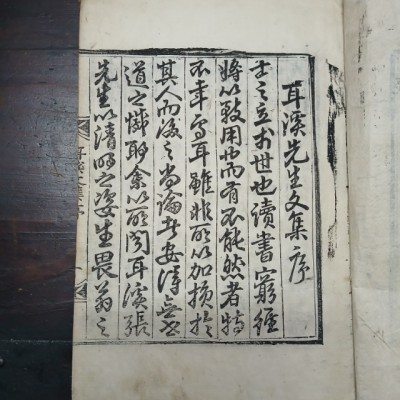 耳溪先生文集序
士之立於世也讀書窮經
將以致用也而有不能然者特
不幸焉耳雖非所以加損於
其人而後之尚論者安得無世
道之慨耶余以所聞耳溪張
先生以清明之姿生畏翁之